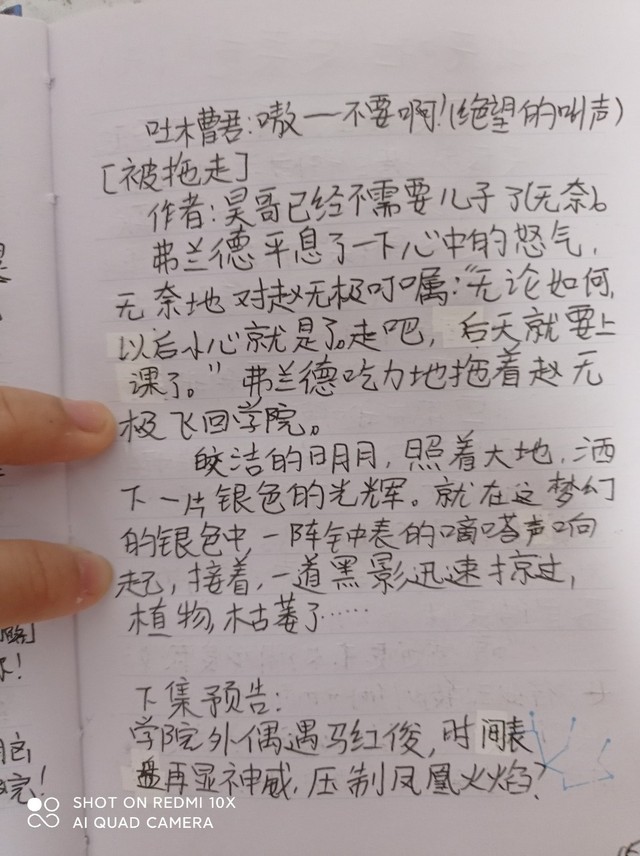 吐槽君:嗷一不要啊!(绝望的叫声)
[被拖走]
作者:昊哥已经不需要儿子了(无奈)。
弗兰德平息了一下心中的怒气,
无奈地对赵无极叮嘱:“无论如何,
以后小心就是了。走吧,后天就要上
课了。”弗兰德吃力地拖着赵无
极飞回学院。
皎洁的明月,照着大地,洒
下一片银色的光辉。就在这梦幻
的银色中,一阵钟表的嘀嗒声响
起,接着,一道黑影迅速掠过,
植物枯萎了……
下集预告:
学院外偶遇马红俊,时间表
盘再显神威,压制凤凰火焰?
SHOT ON REDMI 10X
AI QUAD CAMERA